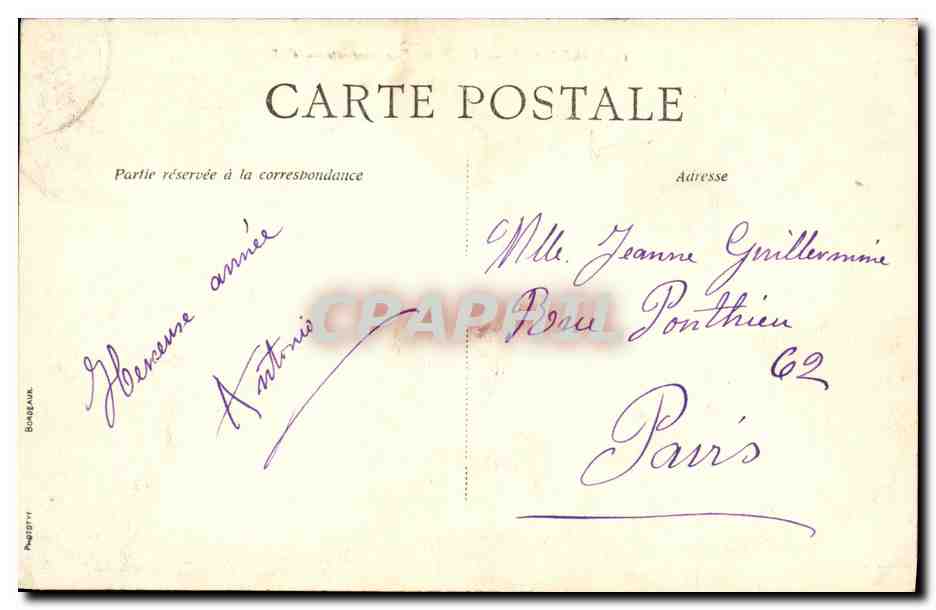 CARTE POSTALE
Partie réservée à la correspondance
Adresse
Heureuse année
Antonio
Mlle. Jeanne Guillermine
Rue Ponthieu
62
Paris
CPAPHIL
BORDEAUX